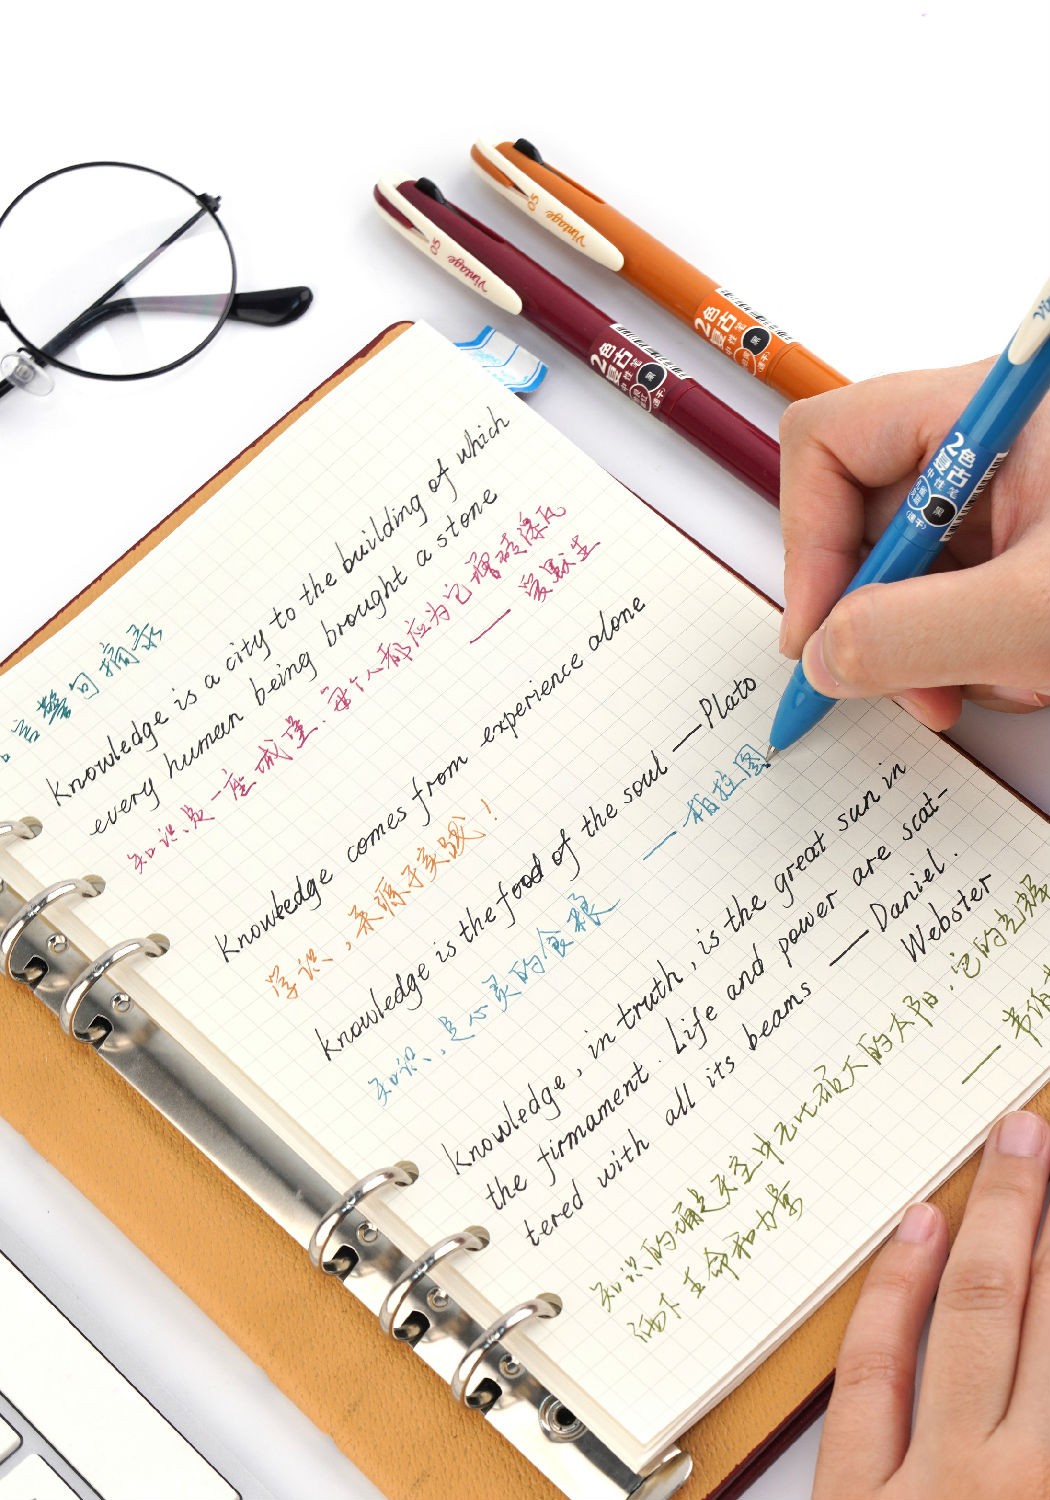 Vintage 0.5
Vintage 0.5
2色
复古
中性笔
黑
(速干)
2色
复古
中性笔
黑
(速干)
2色
复古
中性笔
黑
(速干)
言警句摘录
Knowledge is a city to the building of which
every human being brought a stone
知识是一座城堡,每个人都应为它增砖添瓦
—— 爱默生
Knowledge comes from experience alone
学识,来源于实践!
Knowledge is the food of the soul —Plato
知识,是心灵的食粮 ——柏拉图
Knowledge, in truth, is the great sun in
the firmament. Life and power are scat-
tered with all its beams —Daniel.
Webster
知识的确是天空中无比硕大的太阳,它的光辉
洒下生命和力量